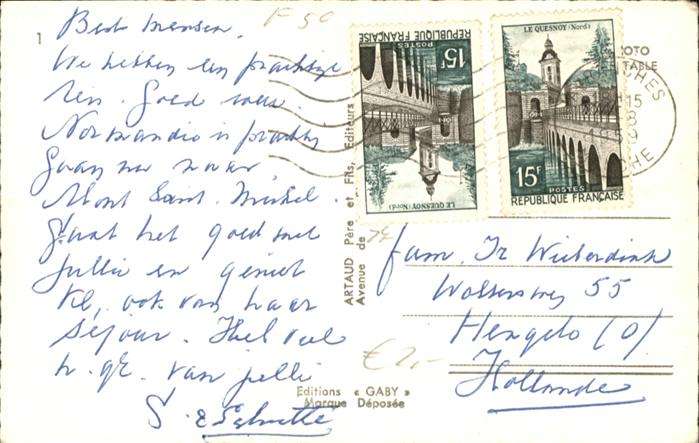 1
Best mensen.
We hebben een prachtige
reis. Goed weer.
Normandie is prachtig
Gaan nu naar
Mont Saint Michel.
Gaat het goed met
jullie en geniet
ook van haar
séjour. Heel veel
h. gr. van jullie
S.
F 50
ARTAUD Père et Fils, Editeurs
Avenue de
Editions « GABY »
Marque Déposée
15F
RÉPUBLIQUE FRANÇAISE
POSTES
LE QUESNOY (Nord)
LE QUESNOY (Nord)
15F
POSTES
RÉPUBLIQUE FRANÇAISE
OTO
TABLE
CHES
15
8
CHE
fam. Ir Wieberdink
55
Hengelo (O)
Hollande
€2,-